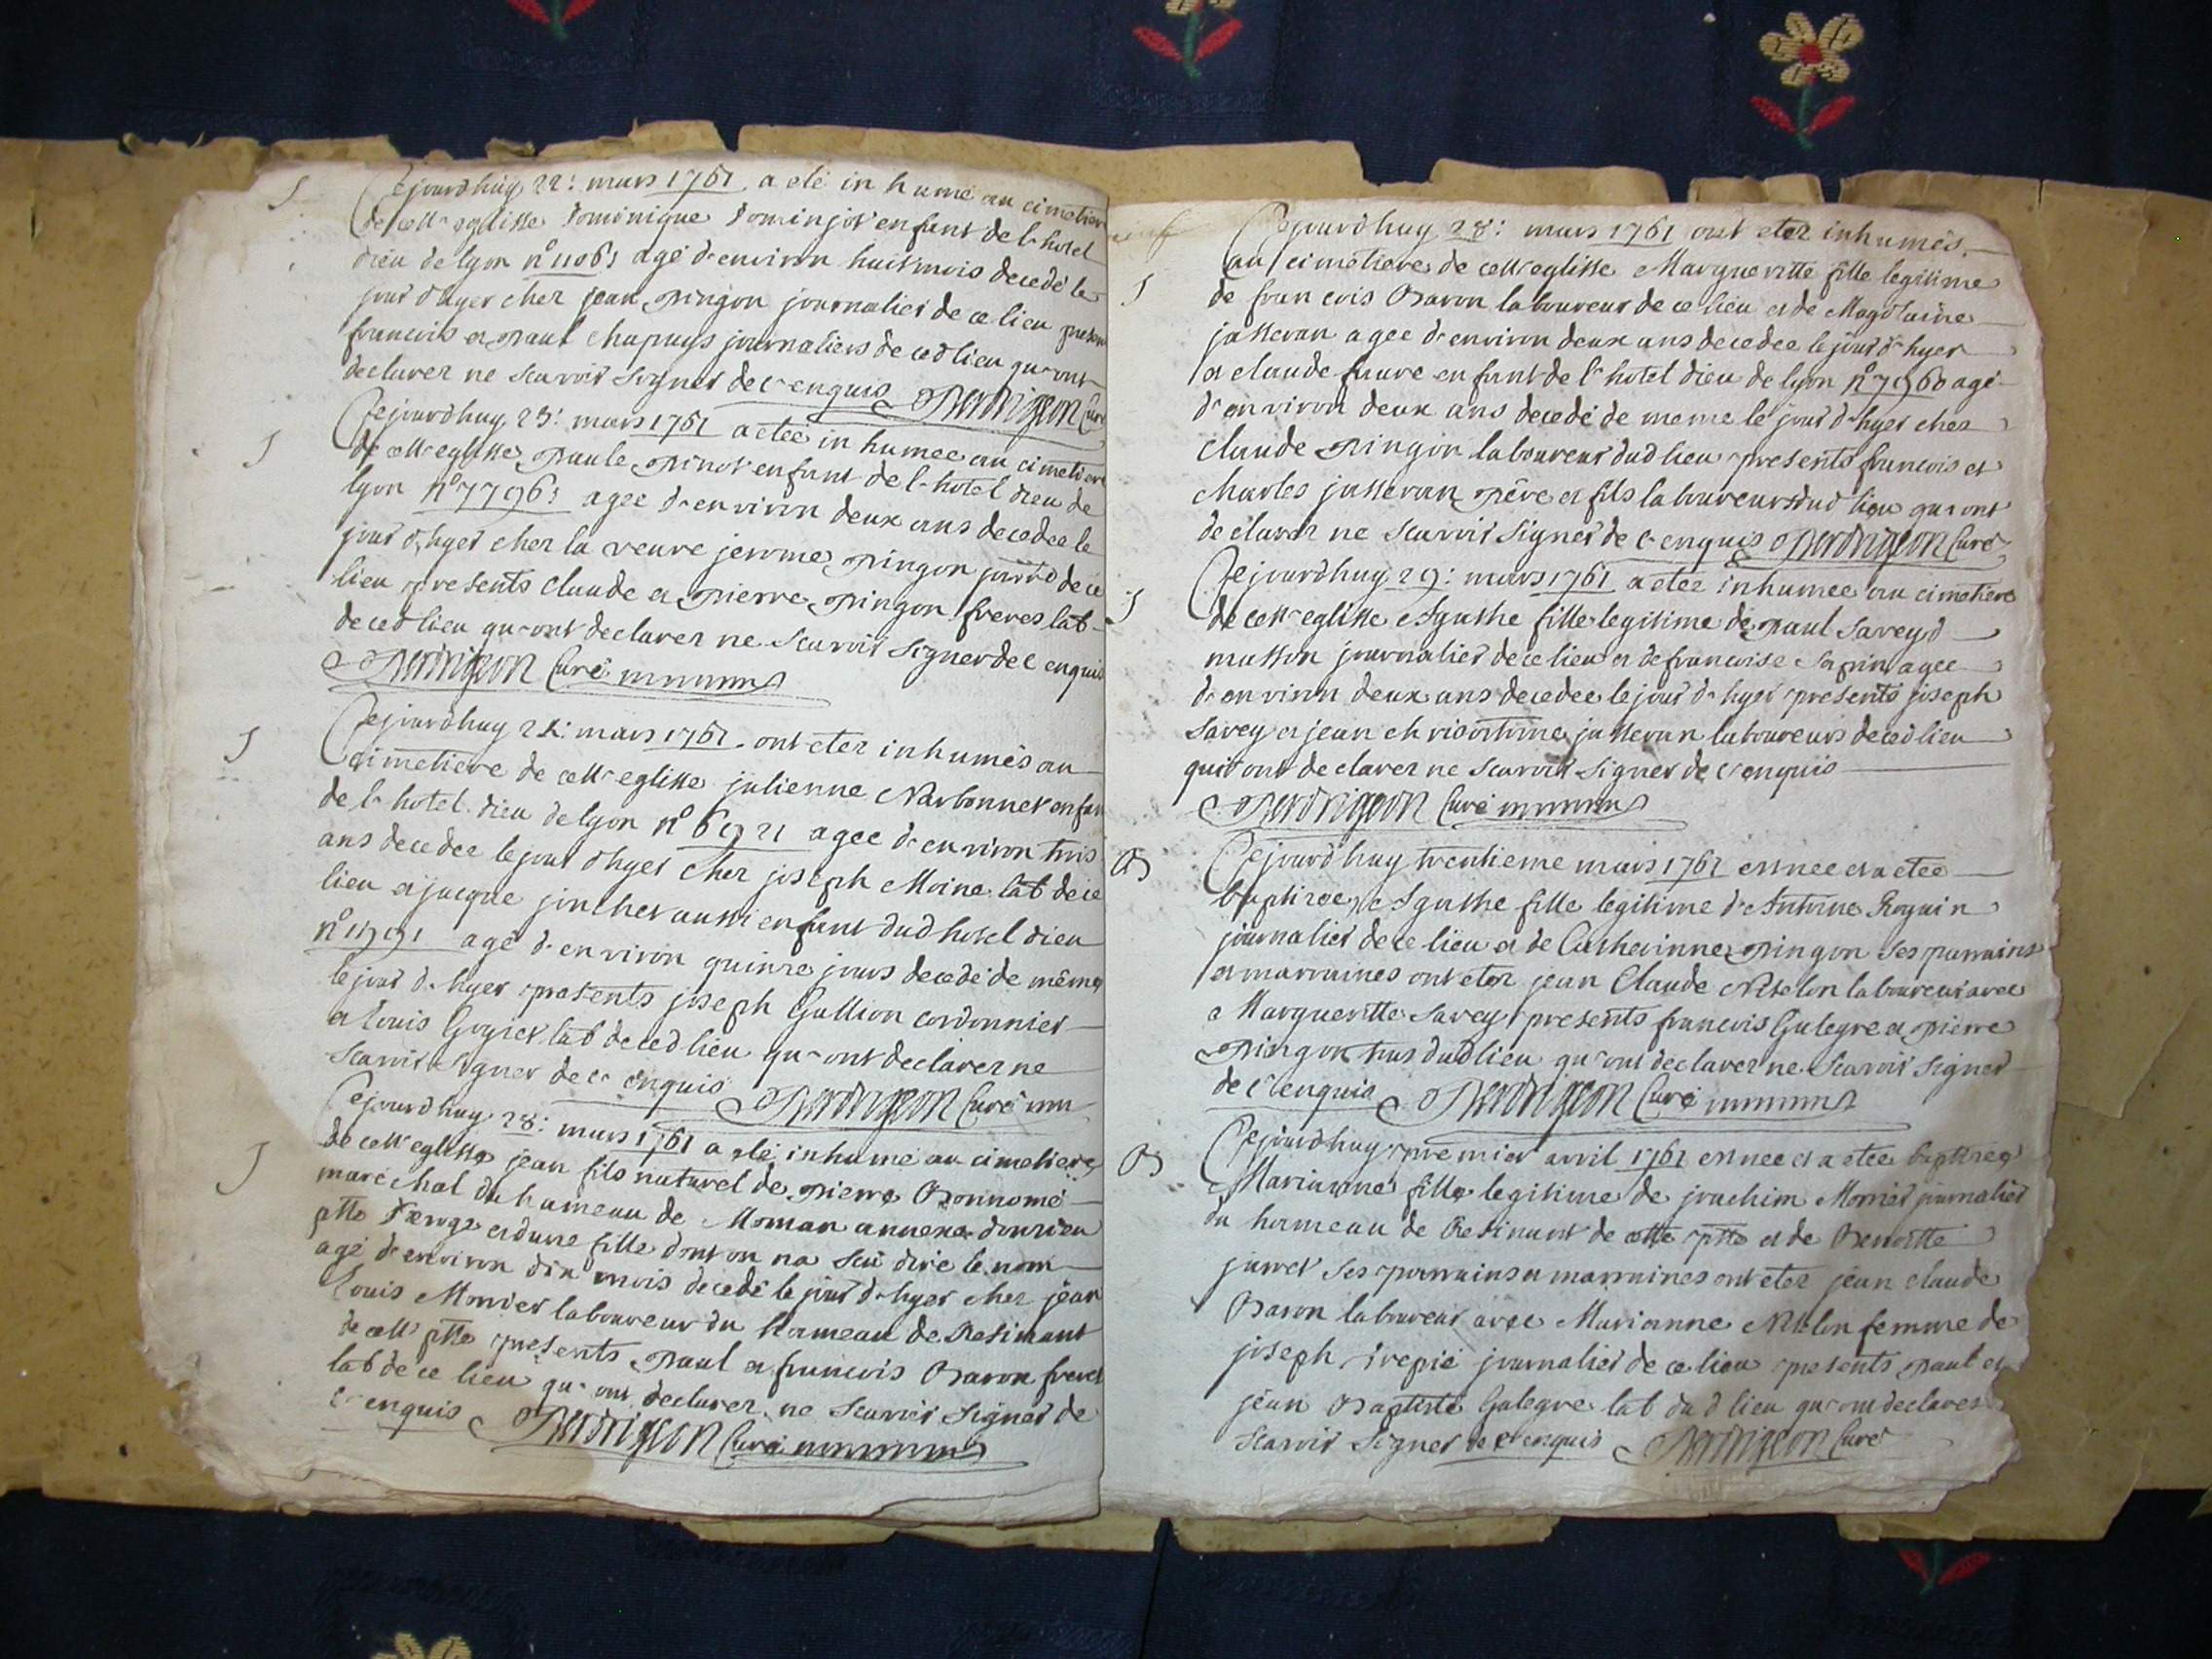 S
Cejourdhuy 22: mars 1761 a eté inhumé au cimetiere
de cette eglisse Dominique Dominjot enfant de l'hotel
dieu de lyon n° agé d'environ huit mois decedé le
jour d'hyer chez jean pingon journalier de ce lieu presents
francois et paul chapuys journaliers de ced lieu qu'ont
declarer ne scavoir signer de c' enquis Perdrigeon Curé
S
Cejourdhuy 23: mars 1761 a etée inhumee au cimetiere
de cette eglisse paule pinot enfant de l'hotel dieu de
lyon n° agee d'environ deux ans decedee le
jour d'hyer chez la veuve jerome pingon de ce
lieu presents Claude et pierre pingon freres lab
de ced lieu qu'ont declarer ne scavoir signer de c' enquis
Perdrigeon Curé
S
Cejourdhuy mars 1761 ont eter inhumés au
cimetiere de cette eglisse julienne Narbonnet enfan
de l'hotel dieu de lyon n° 6921 agee d'environ trois
ans decedee le jour d'hyer chez joseph Moine lab de ce
lieu et jacque aussi enfant dud hotel dieu
n° agé d'environ quinze jours decedé de même
le jour d'hyer presents joseph Gullion cordonnier
et louis lab de ced lieu qu'ont declarer ne
scavoir signer de c' enquis Perdrigeon Curé
S
Cejourdhuy 28: mars 1761 a eté inhumé au cimetiere
de cette eglisse jean fils naturel de pierre Bonnomé
marechal du hameau de Moman annexe
ptte et dune fille dont on na sçu dire le nom
agé d'environ dix mois decedé le jour d'hyer chez jean
Louis Monier laboureur du hameau de Resinant
de cette ptte presents paul et francois Baron freres
lab de ce lieu qu'ont declarer ne scavoir signer de
c' enquis Perdrigeon Curé
Cejourdhuy 28: mars 1761 ont eter inhumés
S
au cimetiere de cette eglisse Margueritte fille legitime
de francois Baron laboureur de ce lieu et de Magdelaine
jasseran agee d'environ deux ans decedee le jour d'hyer
et claude faure enfant de l'hotel dieu de lyon n° 7960 agé
d'environ deux ans decedé de meme le jour d'hyer chez
Claude pingon laboureur dud lieu presents francois et
charles jasseran pére et fils laboureurs dud lieu qu'ont
declarer ne scavoir signer de c' enquis Perdrigeon Curé
S
Cejourdhuy 29: mars 1761 a etez inhumee au cimetiere
de cette eglisse Agathe fille legitime de paul Savey d
masson journalier de ce lieu et de francoise Sapin agee
d'environ deux ans decedee le jour d'hyer presents joseph
Savey et jean chrisostome jasseran laboureurs de ced lieu
qui ont declarer ne scavoir signer de c' enquis
Perdrigeon Curé
B
Cejourdhuy trentieme mars 1761 est nee et a etee
baptizee Agathe fille legitime d'Antoine Roguin
journalier de ce lieu et de Catherinne pingon ses parrains
et marraines ont eter jean Claude Nitelon laboureur avec
Margueritte Savey presents francois Galegre et pierre
pingon tous dud lieu qu'ont declarer ne scavoir signer
de c' enquis Perdrigeon Curé
B
Cejourdhuy premier avril 1761 est nee et a etee baptisee
Marianne fille legitime de joachim Monier journalier
du hameau de Resinant de cette ptte et de Benoitte
juvet ses parrains et marraines ont eter jean claude
Baron laboureur avec Marianne Nitelon femme de
joseph journalier de ce lieu presents paul et
jean Baptiste Galegre lab dud lieu qu'ont declarer
scavoir signer de c' enquis Perdrigeon Curé